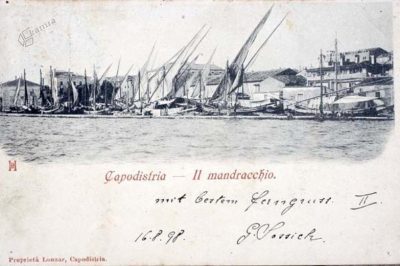 Capodistria — Il mandracchio.
mit bestem Ferngruss. II
16.8.98.
Proprietà Lonzar, Capodistria.